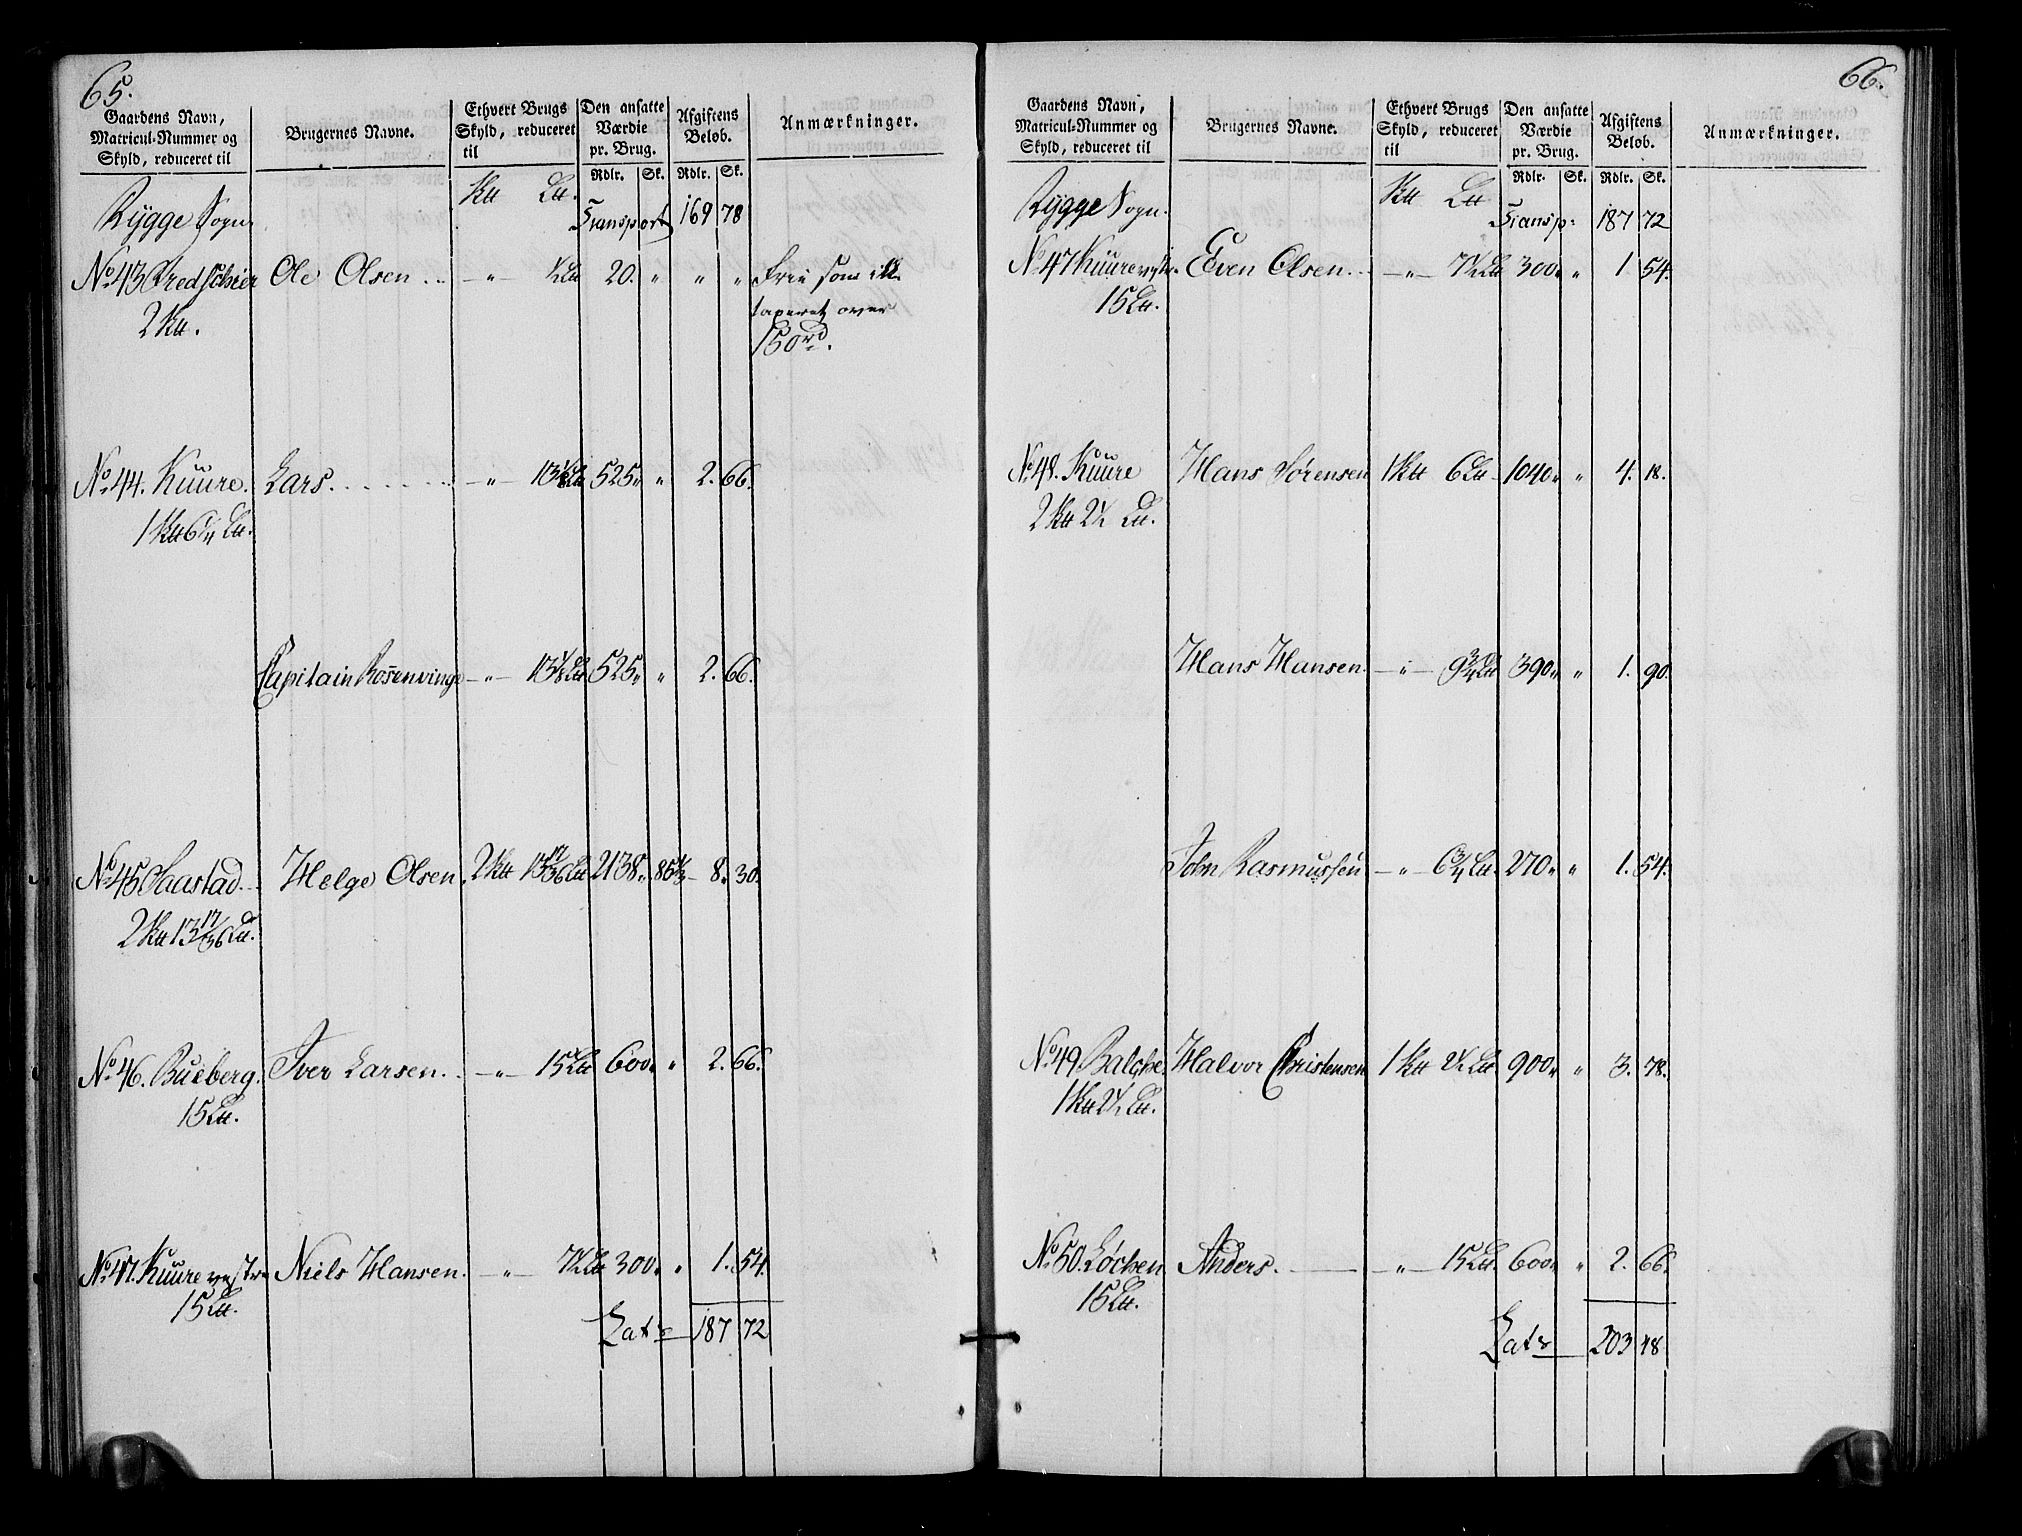 65.
Gaardens Navn,
Matricul-Nummer og
Skyld, reduceret til
Brugernes Navne.
Ethvert Brugs
Skyld, reduceret
til
Den ansatte
Værdie
pr. Brug.
Afgiftens
Beløb.
Anmærkninger.
Rdlr. Sk. Rdlr. Sk.
Rÿgge Sogn. Transport 169 78
No 43 Ole Olsen .. - " 20. " " " Frie som ik
taxeret over
150rd.
No 44. Kuure. Lars. - " - 13⅛ 525 " " 2. 66.
Capitain Rosenvinge - " - 13⅛ 525 " " 2. 66.
No 45 Saastad. Helge Olsen. 2 13 17/36 2138 " 85⅓ 8. 30.
2 13 17/36
No 46. Bueberg. Iver Larsen. - " - 15 600 " " 2. 66.
15
No 47. Kuure vestre Niels Hansen. - " - 7½ 300 " " 1. 54.
15
Lats 187 72
66.
Gaardens Navn,
Matricul-Nummer og
Skyld, reduceret til
Brugernes Navne.
Ethvert Brugs
Skyld, reduceret
til
Den ansatte
Værdie
pr. Brug.
Afgiftens
Beløb.
Anmærkninger.
Rdlr. Sk. Rdlr. Sk.
Rÿgge Sogn. Transp: 187 72
No 47 Kuure vestre Even Olsen. - " - 7½ 300 " " 1 54.
15
No 48. Kuure Hans Sörensen 1 6 1040 " " 4. 18.
2 2½
Hans Hansen. - " - 9¾ 390 " " 1. 90.
John Rasmussen - " - 6¾ 270 " " 1. 54.
No 49. Balche Halvor Christensen 1 2½ 900 " " 3. 78.
1 2½
No 50. Löchen Anders. - " - 15 600 " " 2. 66.
15
Lats 203 48